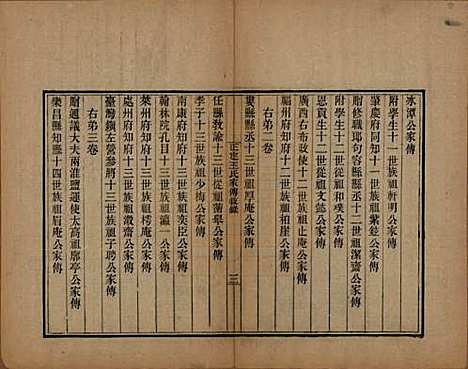 冰潭公家傳
附學生十一世族祖軒明公家傳
肇慶府同知十一世從祖紫銓公家傳
貤修職郎句容縣縣丞十二世祖潔齋公家傳
附學生十二世從祖和璞公家傳
恩貢生十二世從祖文峰公家傳
廣西右布政使十二世族祖止庵公家傳
福州府知府十二世族祖和崖公家傳
右弟二卷
冀縣縣丞十三世祖厚庵公家傳
正定王氏家傳敘錄
三
任縣敎諭十三世從祖蒲舉公家傳
李子十三世族祖少梅公家傳
南康府知府十三世族祖表臣公家傳
翰林院孔目十三世族祖瀛一公家傳
萊州府知府十三世族祖樗庵公家傳
處州府知府十三世族祖澂齋公家傳
臺灣鎭左營參將十三世族祖子聘公家傳
右弟三卷
贈通議大夫兩淮鹽運使太高祖廓亭公家傳
樂昌縣知縣十四世族祖眉庵公家傳